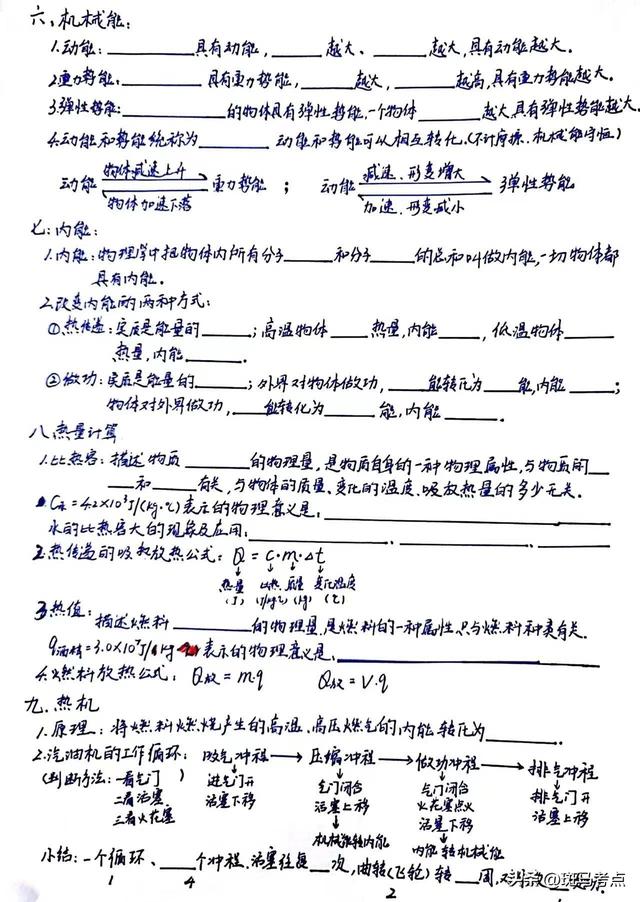 六、机械能:
1.动能:________具有动能,_____越大、_____越大,具有动能越大。
2.重力势能:________具有重力势能,_____越大,_____越高,具有重力势能越大。
3.弹性势能:________的物体具有弹性势能,一个物体_____越大,具有弹性势能越大.
4.动能和势能统称为_____ 动能和势能可以相互转化.(不计摩擦、机械能守恒)
物体减速上升 减速、形变增大
动能 重力势能 ; 动能 弹性势能
物体加速下落 加速、形变减小
七:内能:
1.内能:物理学中把物体内所有分子_____和分子_____的总和叫做内能,一切物体都
具有内能.
2.改变内能的两种方式:
①热传递:实质是能量的_____;高温物体_____热量,内能_____,低温物体_____
热量,内能_____.
②做功:实质是能量的_____;外界对物体做功,____能转化为____能,内能____;
物体对外界做功,____能转化为____能,内能____.
八.热量计算
1.比热容:描述物质______的物理量,是物质自身的一种物理属性,与物质的__
___和____有关,与物体的质量、变化的温度、吸放热量的多少无关.
C水=4.2×10³J/(kg·℃)表示的物理意义是:____________
水的比热容大的现象及应用:________、________、________
2.热传递的吸热放热公式:Q=c·m·Δt
热量 比热 质量 变化温度
(J) (J/kg·℃) (kg) (℃)
3.热值:描述燃料________的物理量.是燃料的一种属性.只与燃料种类有关.
q酒精=3.0×10⁷J/kg 表示的物理意义是:____________
4.燃料放热公式:Q放=m·q Q放=V·q
九.热机
1.原理:将燃料燃烧产生的高温、高压燃气的内能转化为________.
2.汽油机的工作循环:吸气冲程 压缩冲程 做功冲程 排气冲程
(判断方法:一看气门) 进气门开 气门闭合 气门闭合 排气门开
二看活塞 活塞下移 活塞上移 火花塞点火 活塞上移
三看火花塞 活塞下移
机械能转内能 内能转机械能
小结:一个循环、___个冲程.活塞往复__次,曲轴(飞轮)转__周,对外
1 4 2
头条@斑马考点